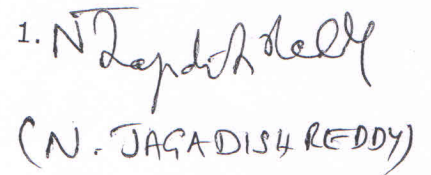 1. N Jagadish Reddy
(N. JAGADISH REDDY)